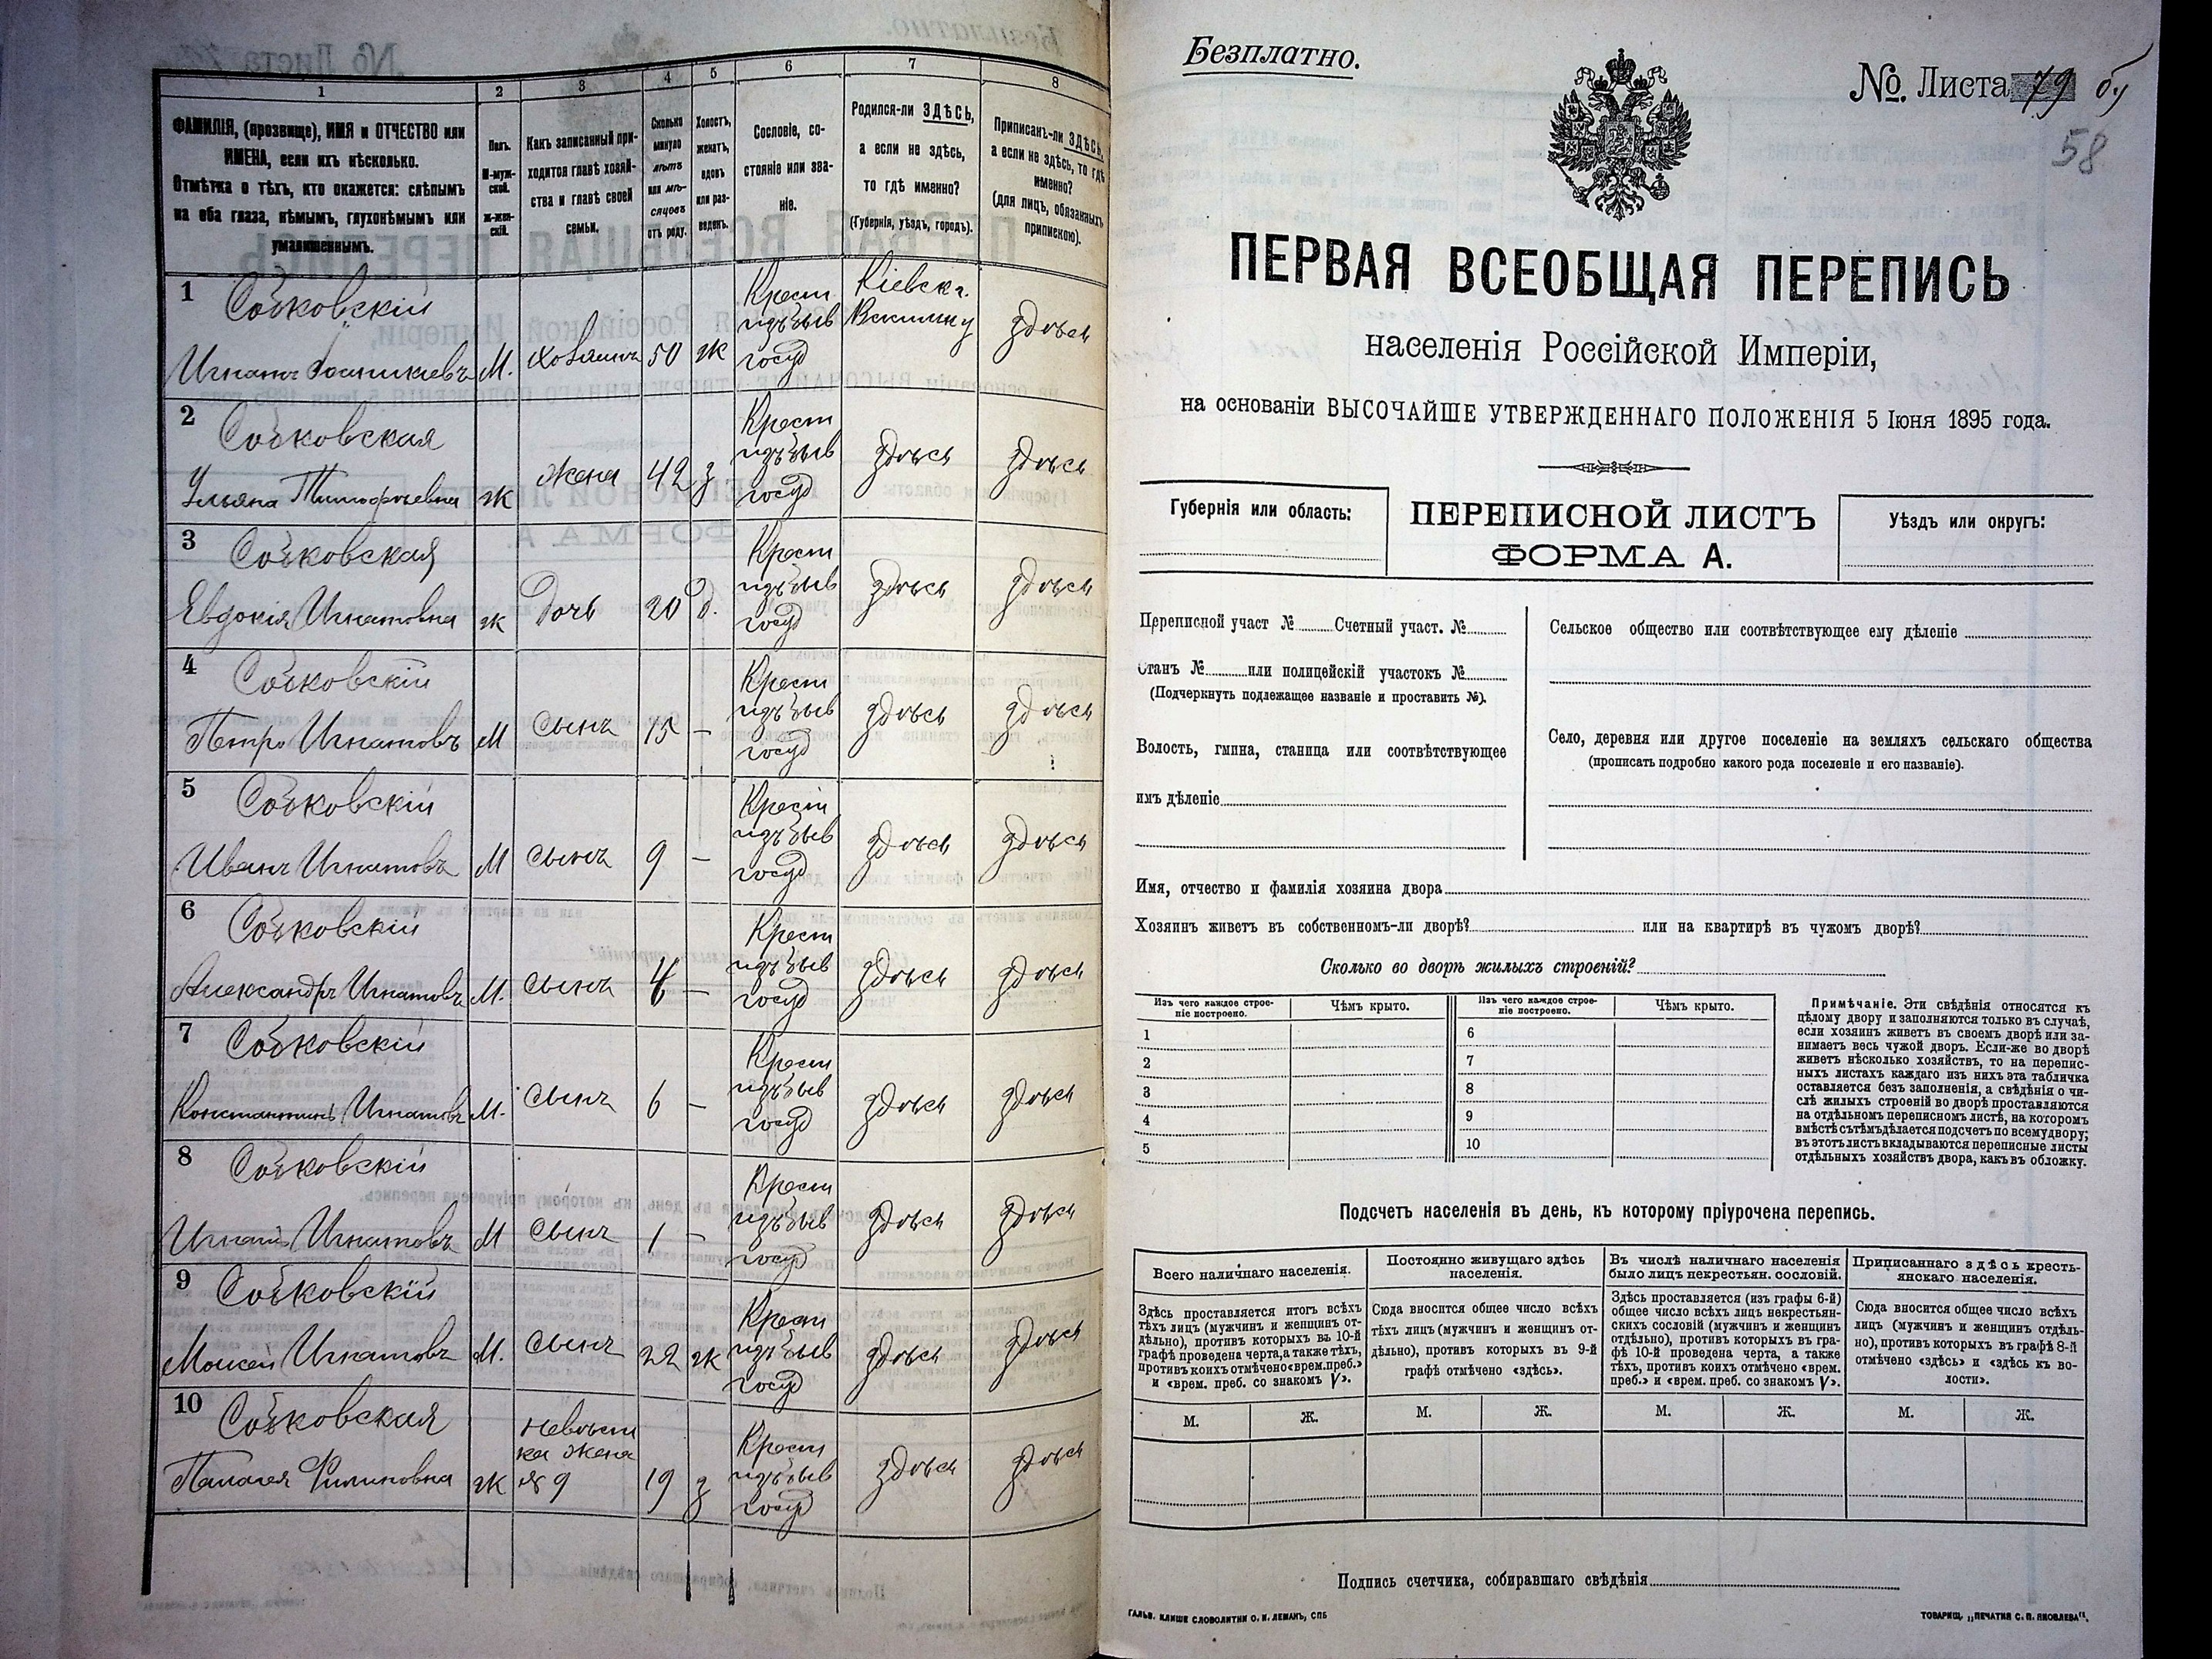 1
2
3
4
5
6
7
8
ФАМИЛІЯ, (прозвище), ИМЯ и ОТЧЕСТВО или
ИМЕНА, если ихъ нѣсколько.
Отмѣтка о тѣхъ, кто окажется: слѣпымъ
на оба глаза, нѣмымъ, глухонѣмымъ или
умалишеннымъ.
Полъ.
М-муж-
ской.
Ж-жен-
скій.
Какъ записанный при-
ходится главѣ хозяй-
ства и главѣ своей
семьи.
Сколько
минуло
лѣтъ
или мѣ-
сяцовъ
отъ роду.
Холостъ,
женатъ,
вдовъ
или раз-
веденъ.
Сословіе, со-
стояніе или зва-
ніе.
Родился-ли ЗДѢСЬ,
а если не здѣсь,
то гдѣ именно?
(Губернія, уѣздъ, городъ).
Приписанъ-ли ЗДѢСЬ,
а если не здѣсь, то гдѣ
именно?
(для лицъ, обязанныхъ
припискою).
1
Собковскій
Игнатъ М. хозяинъ 50 ж
Крест изъ быв госуд
Кіевск г.
здѣсь
2
Собковская
Ульяна Тимофѣевна ж жена 42 з
Крест изъ быв госуд
здѣсь здѣсь
3
Собковская
Евдокія Игнатовна ж дочь 20 д.
Крест изъ быв госуд
здѣсь здѣсь
4
Собковскій
Петро Игнатовъ М сынъ 15 –
Крест изъ быв госуд
здѣсь здѣсь
5
Собковскій
Иванъ Игнатовъ М сынъ 9 –
Крест изъ быв госуд
здѣсь здѣсь
6
Собковскій
Александръ Игнатовъ М. сынъ –
Крест изъ быв госуд
здѣсь здѣсь
7
Собковскій
Константинъ Игнатовъ М. сынъ 6 –
Крест изъ быв госуд
здѣсь здѣсь
8
Собковскій
Игнатій Игнатовъ М сынъ 1 –
Крест изъ быв госуд
здѣсь здѣсь
9
Собковскій
Моисей Игнатовъ М. сынъ 22 ж
Крест изъ быв госуд
здѣсь здѣсь
10
Собковская
Палагея Филиповна ж
невѣст
ка жена
№ 9
19 з
Крест изъ быв госуд
здѣсь здѣсь
Безплатно.
№. Листа 79 бу
58
ПЕРВАЯ ВСЕОБЩАЯ ПЕРЕПИСЬ
населенія Россійской Имперіи,
на основаніи ВЫСОЧАЙШЕ УТВЕРЖДЕННАГО ПОЛОЖЕНІЯ 5 Іюня 1895 года.
Губернія или область:
ПЕРЕПИСНОЙ ЛИСТЪ
ФОРМА А.
Уѣздъ или округъ:
Переписной участ № Счетный участ. №
Станъ № или полицейскій участокъ №
(Подчеркнуть подлежащее названіе и проставить №).
Волость, гмина, станица или соотвѣтствующее
имъ дѣленіе
Сельское общество или соотвѣтствующее ему дѣленіе
Село, деревня или другое поселеніе на земляхъ сельскаго общества
(прописать подробно какого рода поселеніе и его названіе).
Имя, отчество и фамилія хозяина двора
Хозяинъ живетъ въ собственномъ-ли дворѣ? или на квартирѣ въ чужомъ дворѣ?
Сколько во дворѣ жилыхъ строеній?
Изъ чего каждое строе-
ніе построено.
Чѣмъ крыто.
Изъ чего каждое строе-
ніе построено.
Чѣмъ крыто.
1
6
2
7
3
8
4
9
5
10
Примѣчаніе. Эти свѣдѣнія относятся къ
цѣлому двору и заполняются только въ случаѣ,
если хозяинъ живетъ въ своемъ дворѣ или за-
нимаетъ весь чужой дворъ. Если-же во дворѣ
живетъ нѣсколько хозяйствъ, то на перепис-
ныхъ листахъ каждаго изъ нихъ эта табличка
оставляется безъ заполненія, а свѣдѣнія о чи-
слѣ жилыхъ строеній во дворѣ проставляются
на отдѣльномъ переписномъ листѣ, на которомъ
вмѣстѣ съ тѣмъ дѣлается подсчетъ по всему двору;
въ этотъ листъ вкладываются переписные листы
отдѣльныхъ хозяйствъ двора, какъ въ обложку.
Подсчетъ населенія въ день, къ которому пріурочена перепись.
Всего наличнаго населенія.
Постоянно живущаго здѣсь
населенія.
Въ числѣ наличнаго населенія
было лицъ некрестьян. сословій.
Приписаннаго здѣсь кресть-
янскаго населенія.
Здѣсь проставляется итогъ всѣхъ
тѣхъ лицъ (мужчинъ и женщинъ от-
дѣльно), противъ которыхъ въ 10-й
графѣ проведена черта, а также тѣхъ,
противъ коихъ отмѣчено «врем. преб.»
и «врем. преб. со знакомъ V».
Сюда вносится общее число всѣхъ
тѣхъ лицъ (мужчинъ и женщинъ от-
дѣльно), противъ которыхъ въ 9-й
графѣ отмѣчено «здѣсь».
Здѣсь проставляется (изъ графы 6-й)
общее число всѣхъ лицъ некрестьян-
скихъ сословій (мужчинъ и женщинъ
отдѣльно), противъ которыхъ въ гра-
фѣ 10-й проведена черта, а также
тѣхъ, противъ коихъ отмѣчено «врем.
преб.» и «врем. преб. со знакомъ V».
Сюда вносится общее число всѣхъ
лицъ (мужчинъ и женщинъ отдѣль-
но), противъ которыхъ въ графѣ 8-й
отмѣчено «здѣсь» и «здѣсь къ во-
лости».
М. Ж. М. Ж. М. Ж. М. Ж.
Подпись счетчика, собиравшаго свѣдѣнія
ГАЛЬВ. КЛИШЕ СЛОВОЛИТНИ О. И. ЛЕМАНЪ, СПБ
ТОВАРИЩ. „ПЕЧАТНЯ С. П. ЯКОВЛЕВА“.